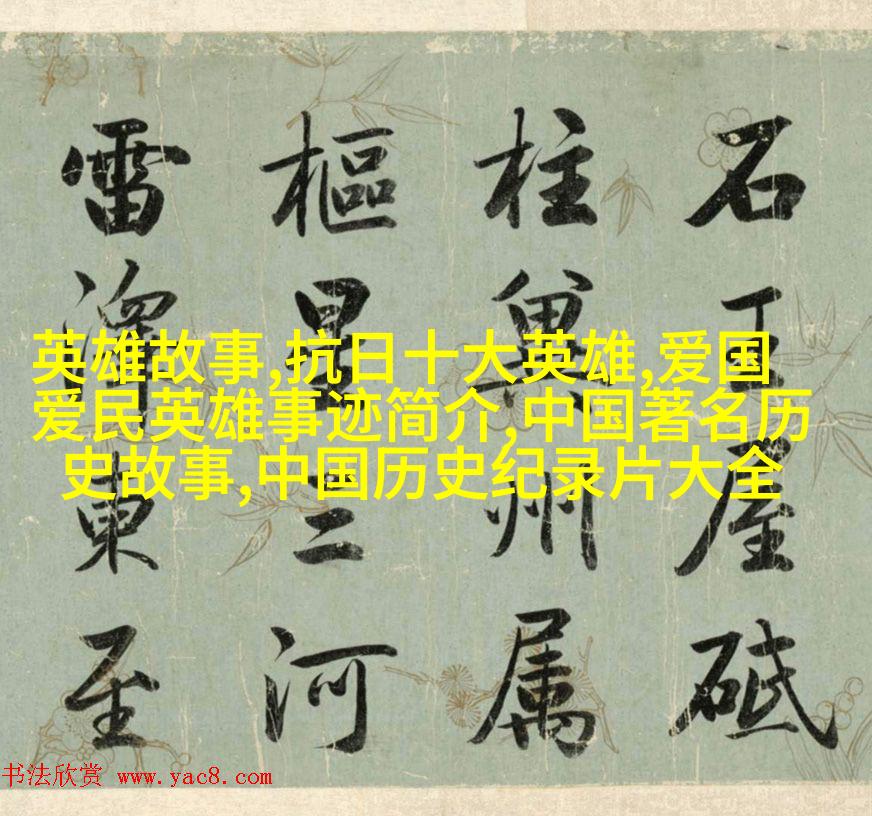 石王屋砥
柱冀州属
樞星三河
雷澤東至
英雄故事,抗日十大英雄,爱国
爱民英雄事迹简介,中国著名历
史故事,中国历史纪录片大全
书法欣赏 www.yac8.com